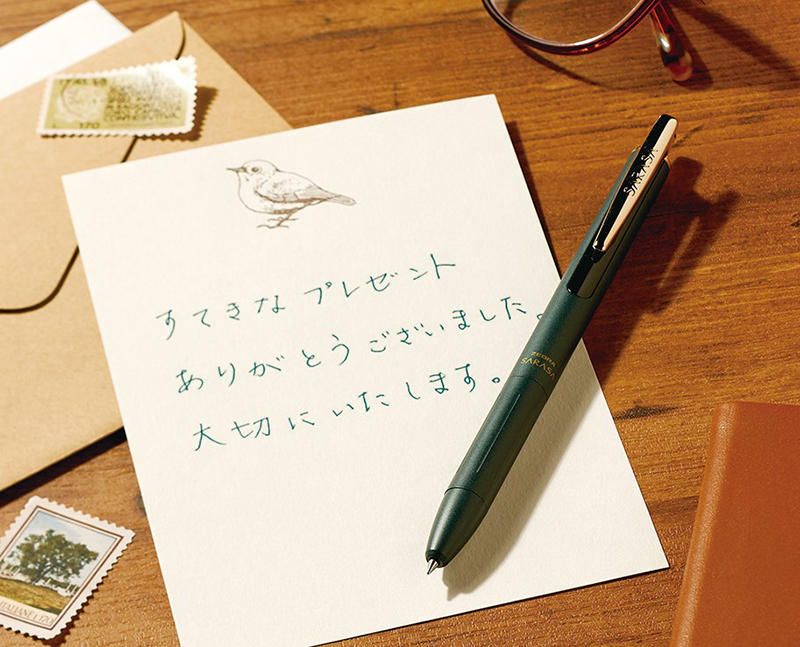 170
すてきな プレゼント
ありがとうございました。
大切にいたします。
SARASA
ZEBRA
SARASA